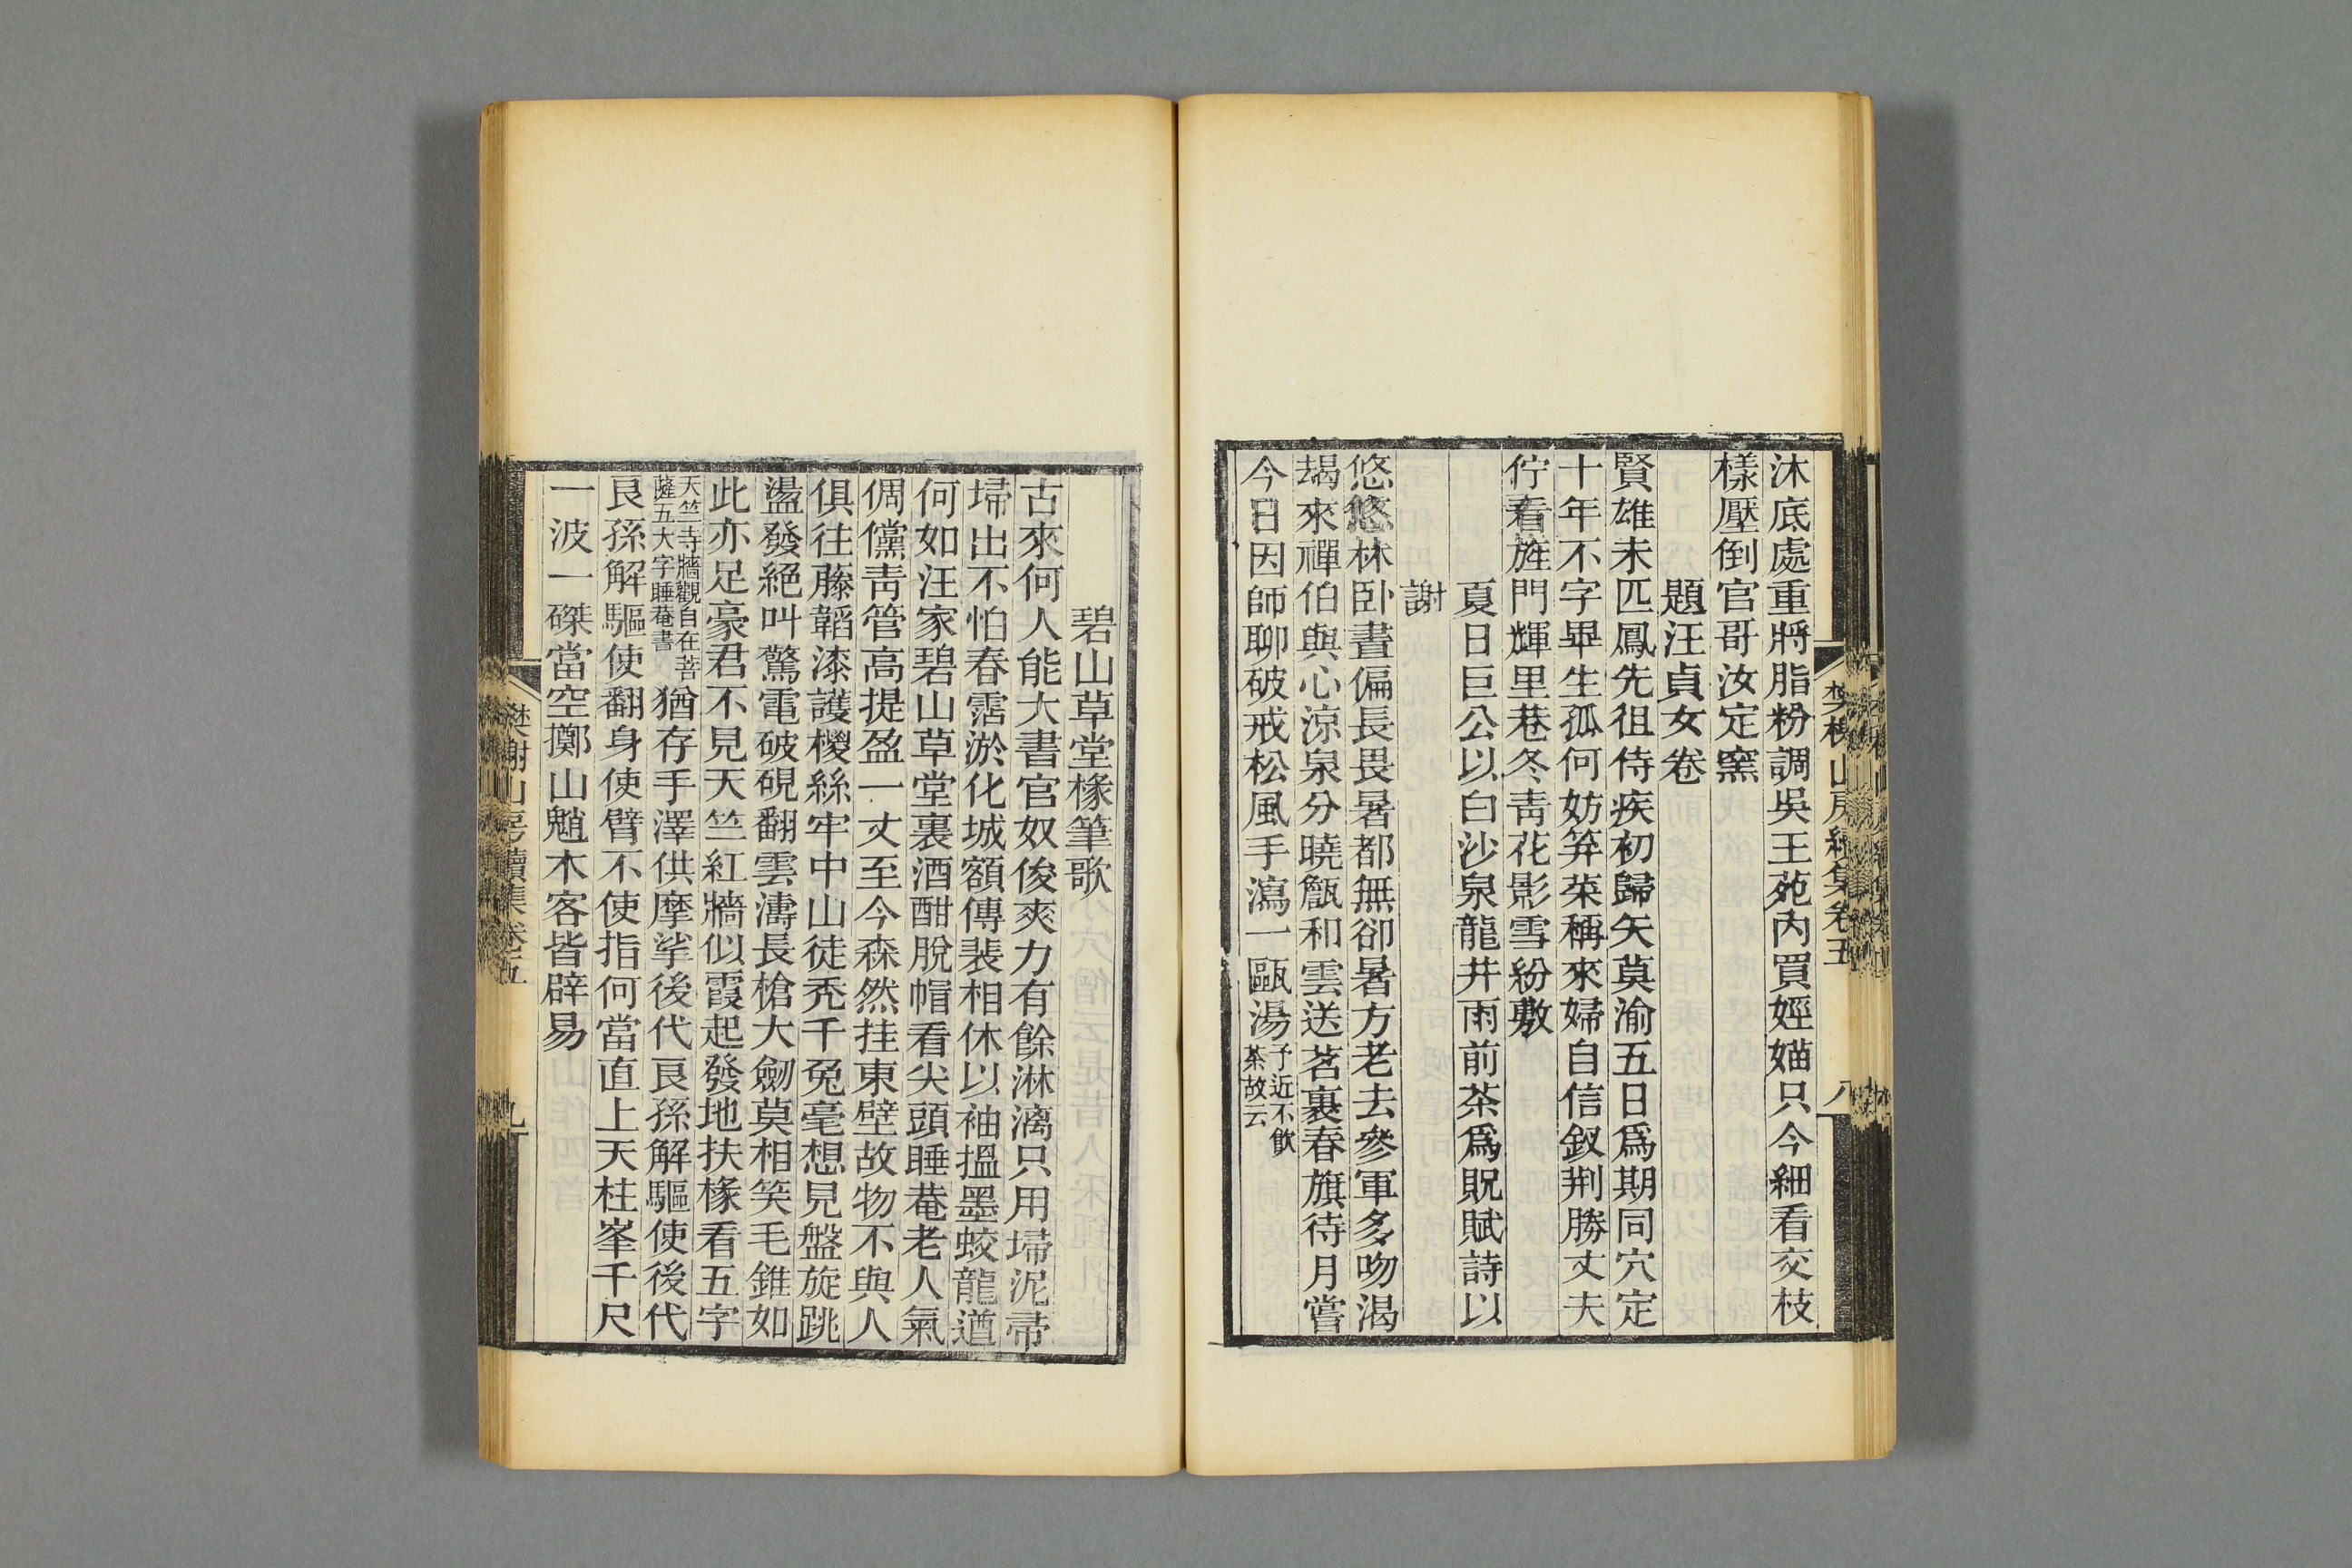 沐底處重將脂粉調吳王苑內買娙媌只今細看交枝
樣壓倒官哥汝定窯
題汪貞女卷
賢雄未匹鳳先徂侍疾初歸矢莫渝五日爲期同穴定
十年不字畢生孤何妨筭䇲稱來婦自信釵荆勝丈夫
佇看旌門輝里巷冬靑花影雪紛敷
夏日巨公以白沙泉龍井雨前茶爲貺賦詩以
謝
悠悠林卧晝偏長畏暑都無卻暑方老去參軍多吻渴
朅來禪伯與心涼泉分曉甀和雲送茗裹春旗待月嘗
今日因師聊破戒松風手瀉一甌湯
予近不飲
茶故云
樊榭山房續集卷五
八
碧山草堂椽筆歌
古來何人能大書官奴俊爽力有餘淋漓只用埽泥帚
埽出不怕春霑淤化城額傳裴相休以袖搵墨蛟龍遒
何如汪家碧山草堂裏酒酣脫帽看尖頭睡菴老人氣
倜儻靑管高提盈一丈至今森然挂東壁故物不與人
俱往藤韜漆護椶絲牢中山徒禿千兔毫想見盤旋跳
盪發絕叫驚電破硯翻雲濤長槍大劒莫相笑毛錐如
此亦足豪君不見天竺紅牆似霞起發地扶椽看五字
天竺寺牆觀自在菩
薩五大字睡菴書
猶存手澤供摩挲後代艮孫解驅使後代
艮孫解驅使翻身使臂不使指何當直上天柱峯千尺
一波一磔當空擲山魈木客皆辟易
樊榭山房續集卷五
九